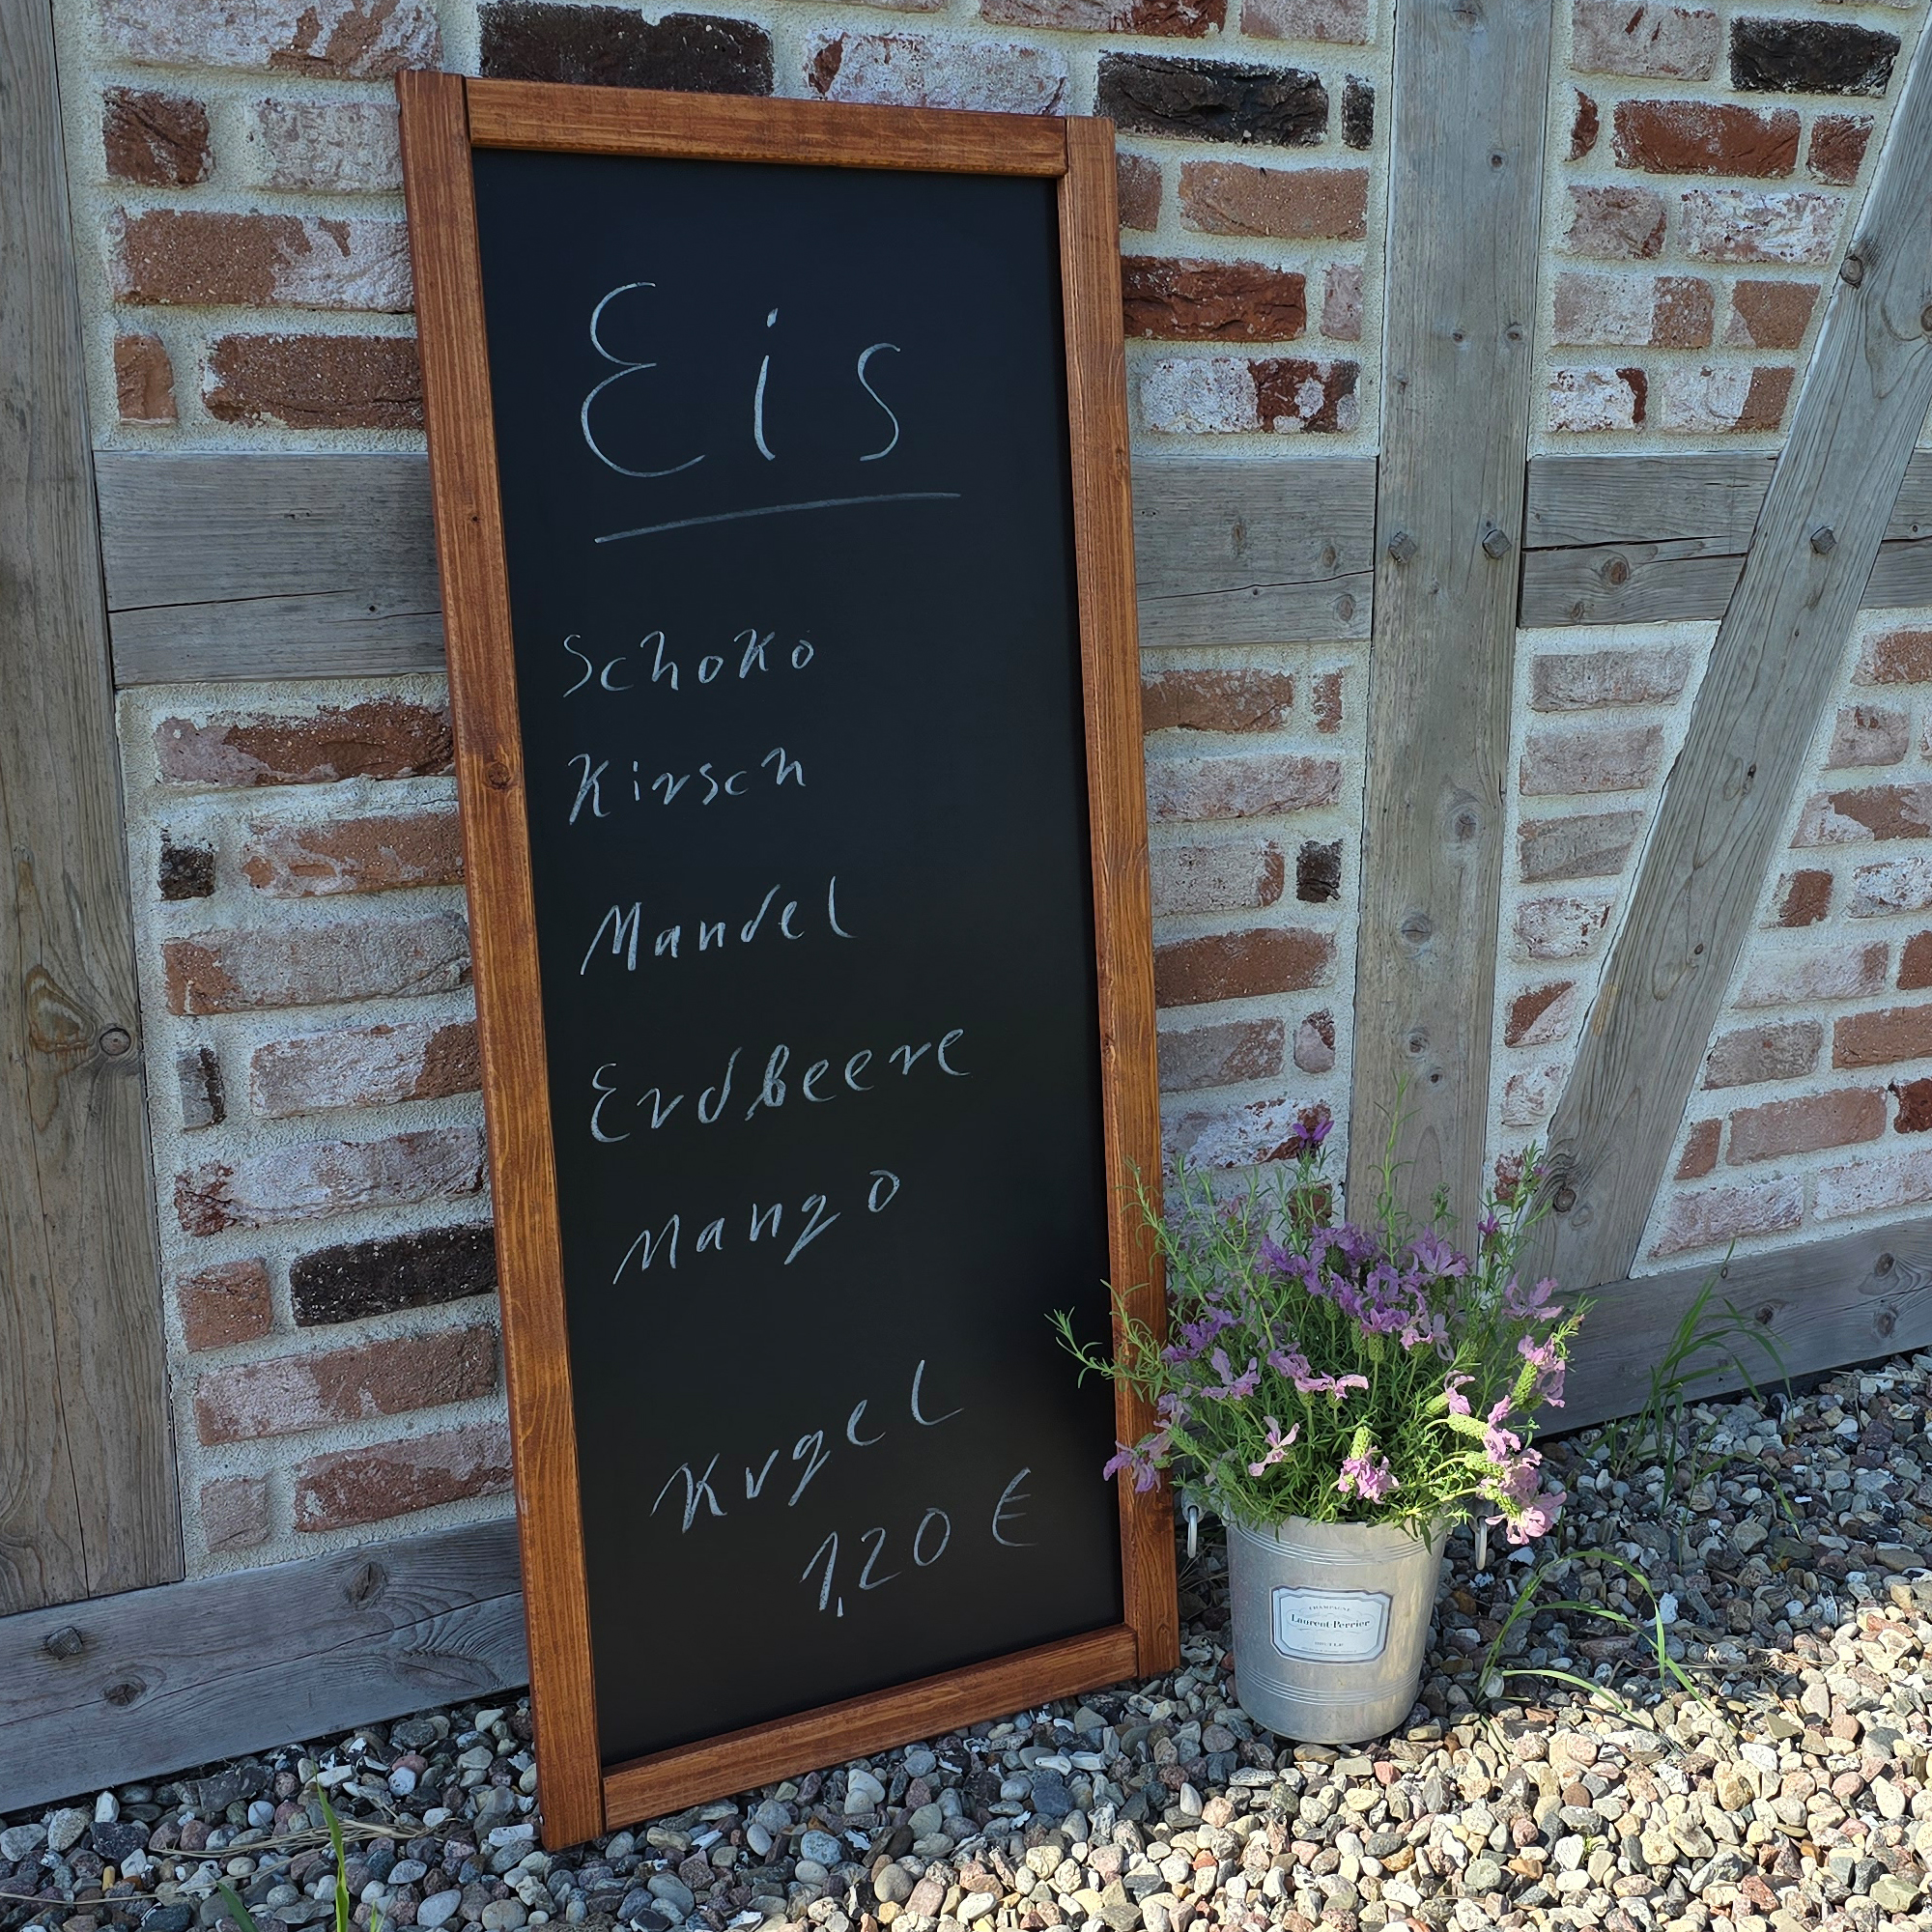 Eis
Schoko
Kirsch
Mandel
Erdbeere
Mango
Kugel
1,20 €
CHAMPAGNE
Laurent-Perrier